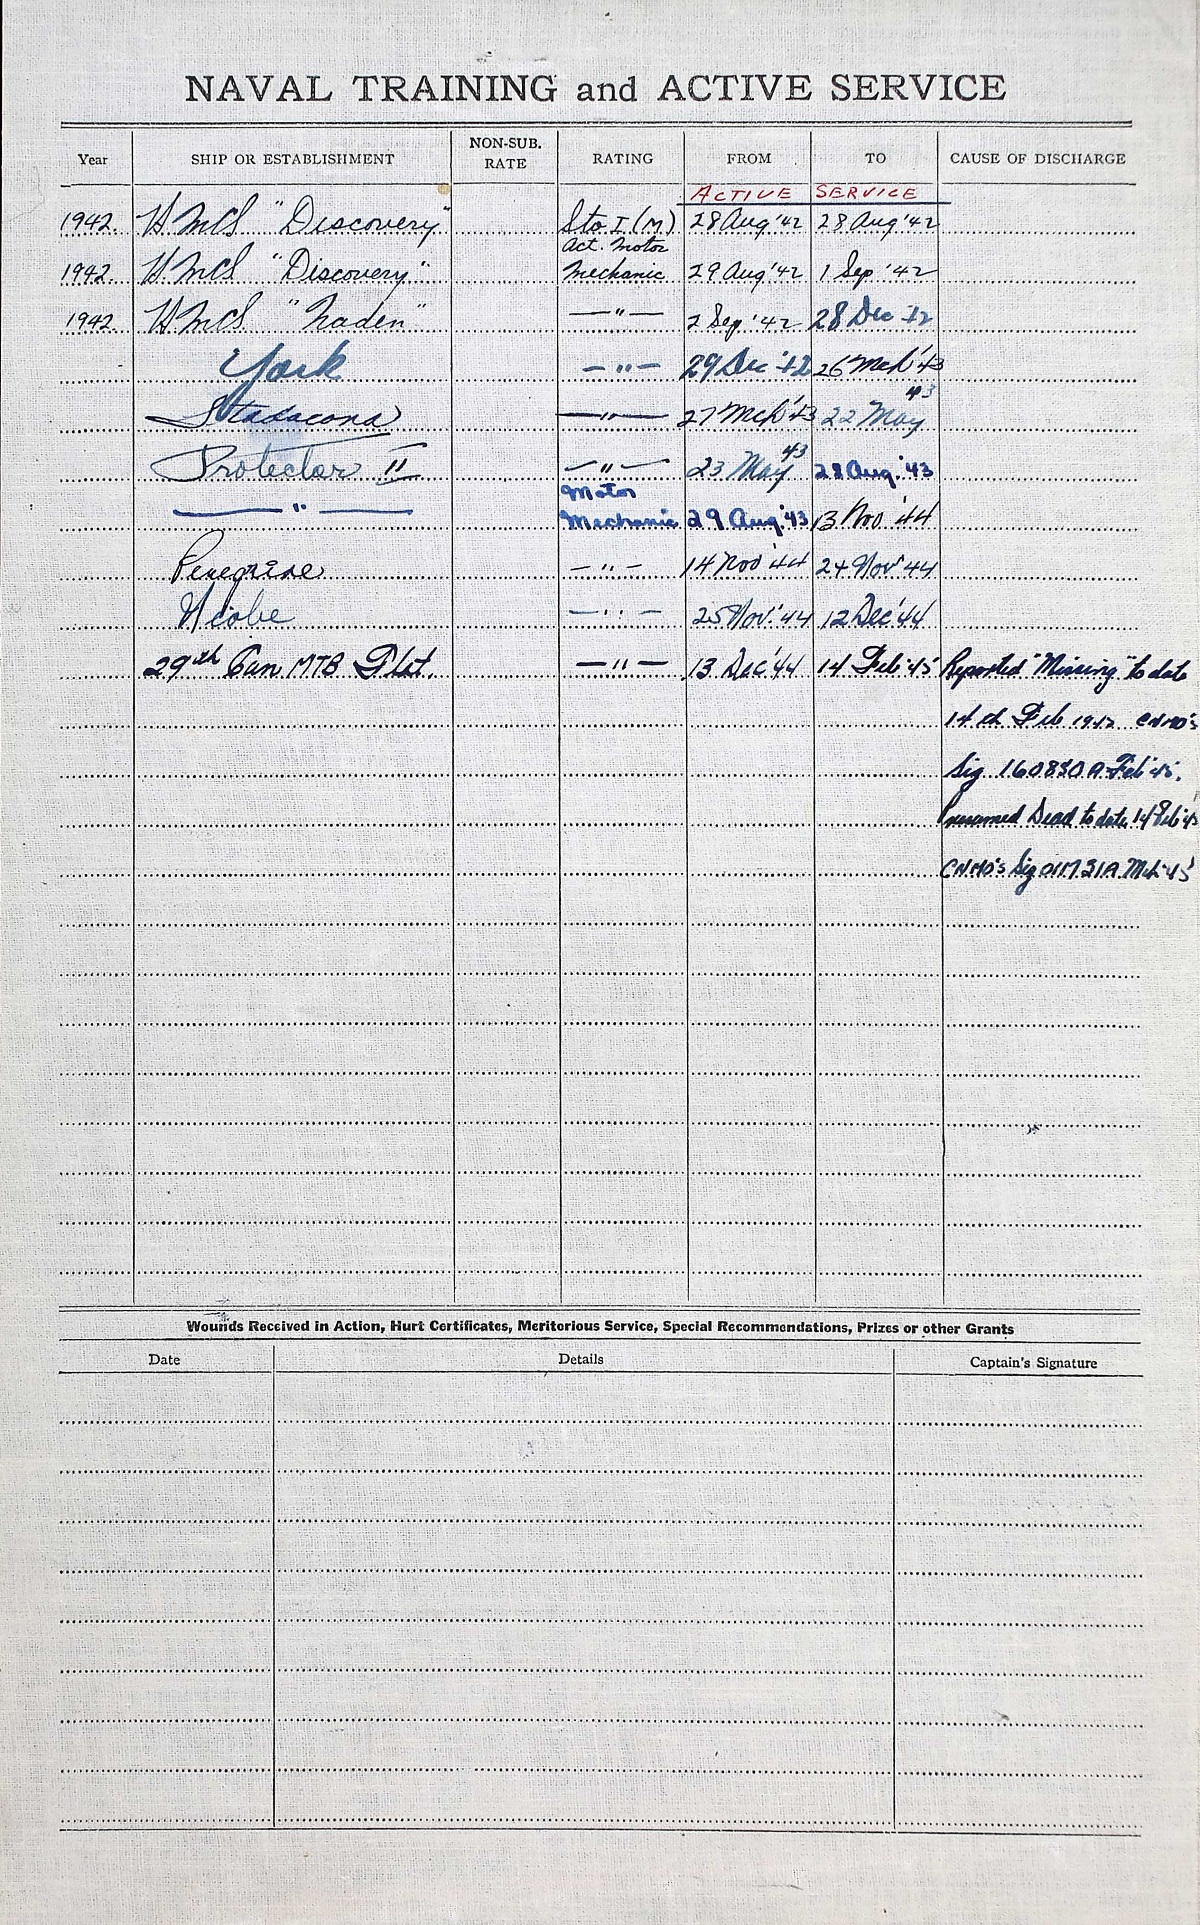 NAVAL TRAINING and ACTIVE SERVICE
Year SHIP OR ESTABLISHMENT NON-SUB. RATE RATING FROM TO CAUSE OF DISCHARGE
ACTIVE SERVICE
1942. H.M.C.S "Discovery" Sto I (M) 28 Aug '42 28 Aug '42
1942. H.M.C.S "Discovery" Act. Motor Mechanic 29 Aug '42 1 Sep '42
1942. H.M.C.S "Naden" — " — 2 Sep. '42 28 Dec '42
York — " — 29 Dec '42 26 Mch '43
Stadacona — " — 27 Mch '43 22 May '43
Protector II — " — 23 May '43 28 Aug. '43
— " — Motor Mechanic 29 Aug. '43 13 Nov '44
Peregrine — " — 14 Nov '44 24 Nov '44
Niobe — " — 25 Nov. '44 12 Dec '44
29th Can MTB Flot. — " — 13 Dec '44 14 Feb '45 Reported "Missing" to date
14th Feb CNMO's
Sig 160830A Feb '45.
Presumed Dead to date 14 Feb '45
CNMO's Sig 011731A Mch '45
Wounds Received in Action, Hurt Certificates, Meritorious Service, Special Recommendations, Prizes or other Grants
Date Details Captain's Signature